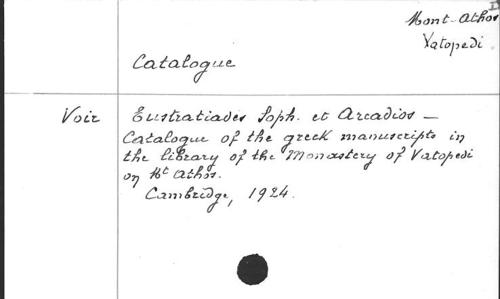 Mont-Athos
Vatopedi.
Catalogue
Voir Eustratiades Soph. et Arcadios —
Catalogue of the greek manuscripts in
the library of the Monastery of Vatopedi
on Mt Athos.
Cambridge, 1924.